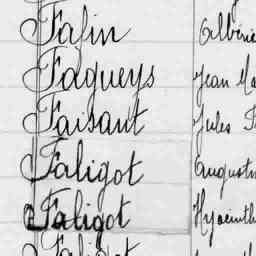 Fafin Albéric
Fagueys Jean Ma
Faisant Jules F
Faligot Augustin
Faligot Hyacinth
Faligot